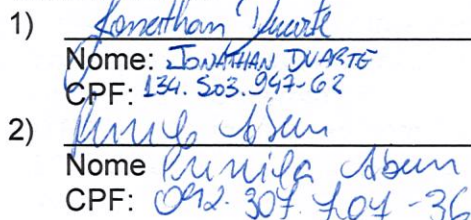 1) Jonathan Duarte
Nome: JONATHAN DUARTE
CPF: 134.503.947-62
2)
Nome
CPF: 092.307.704-36